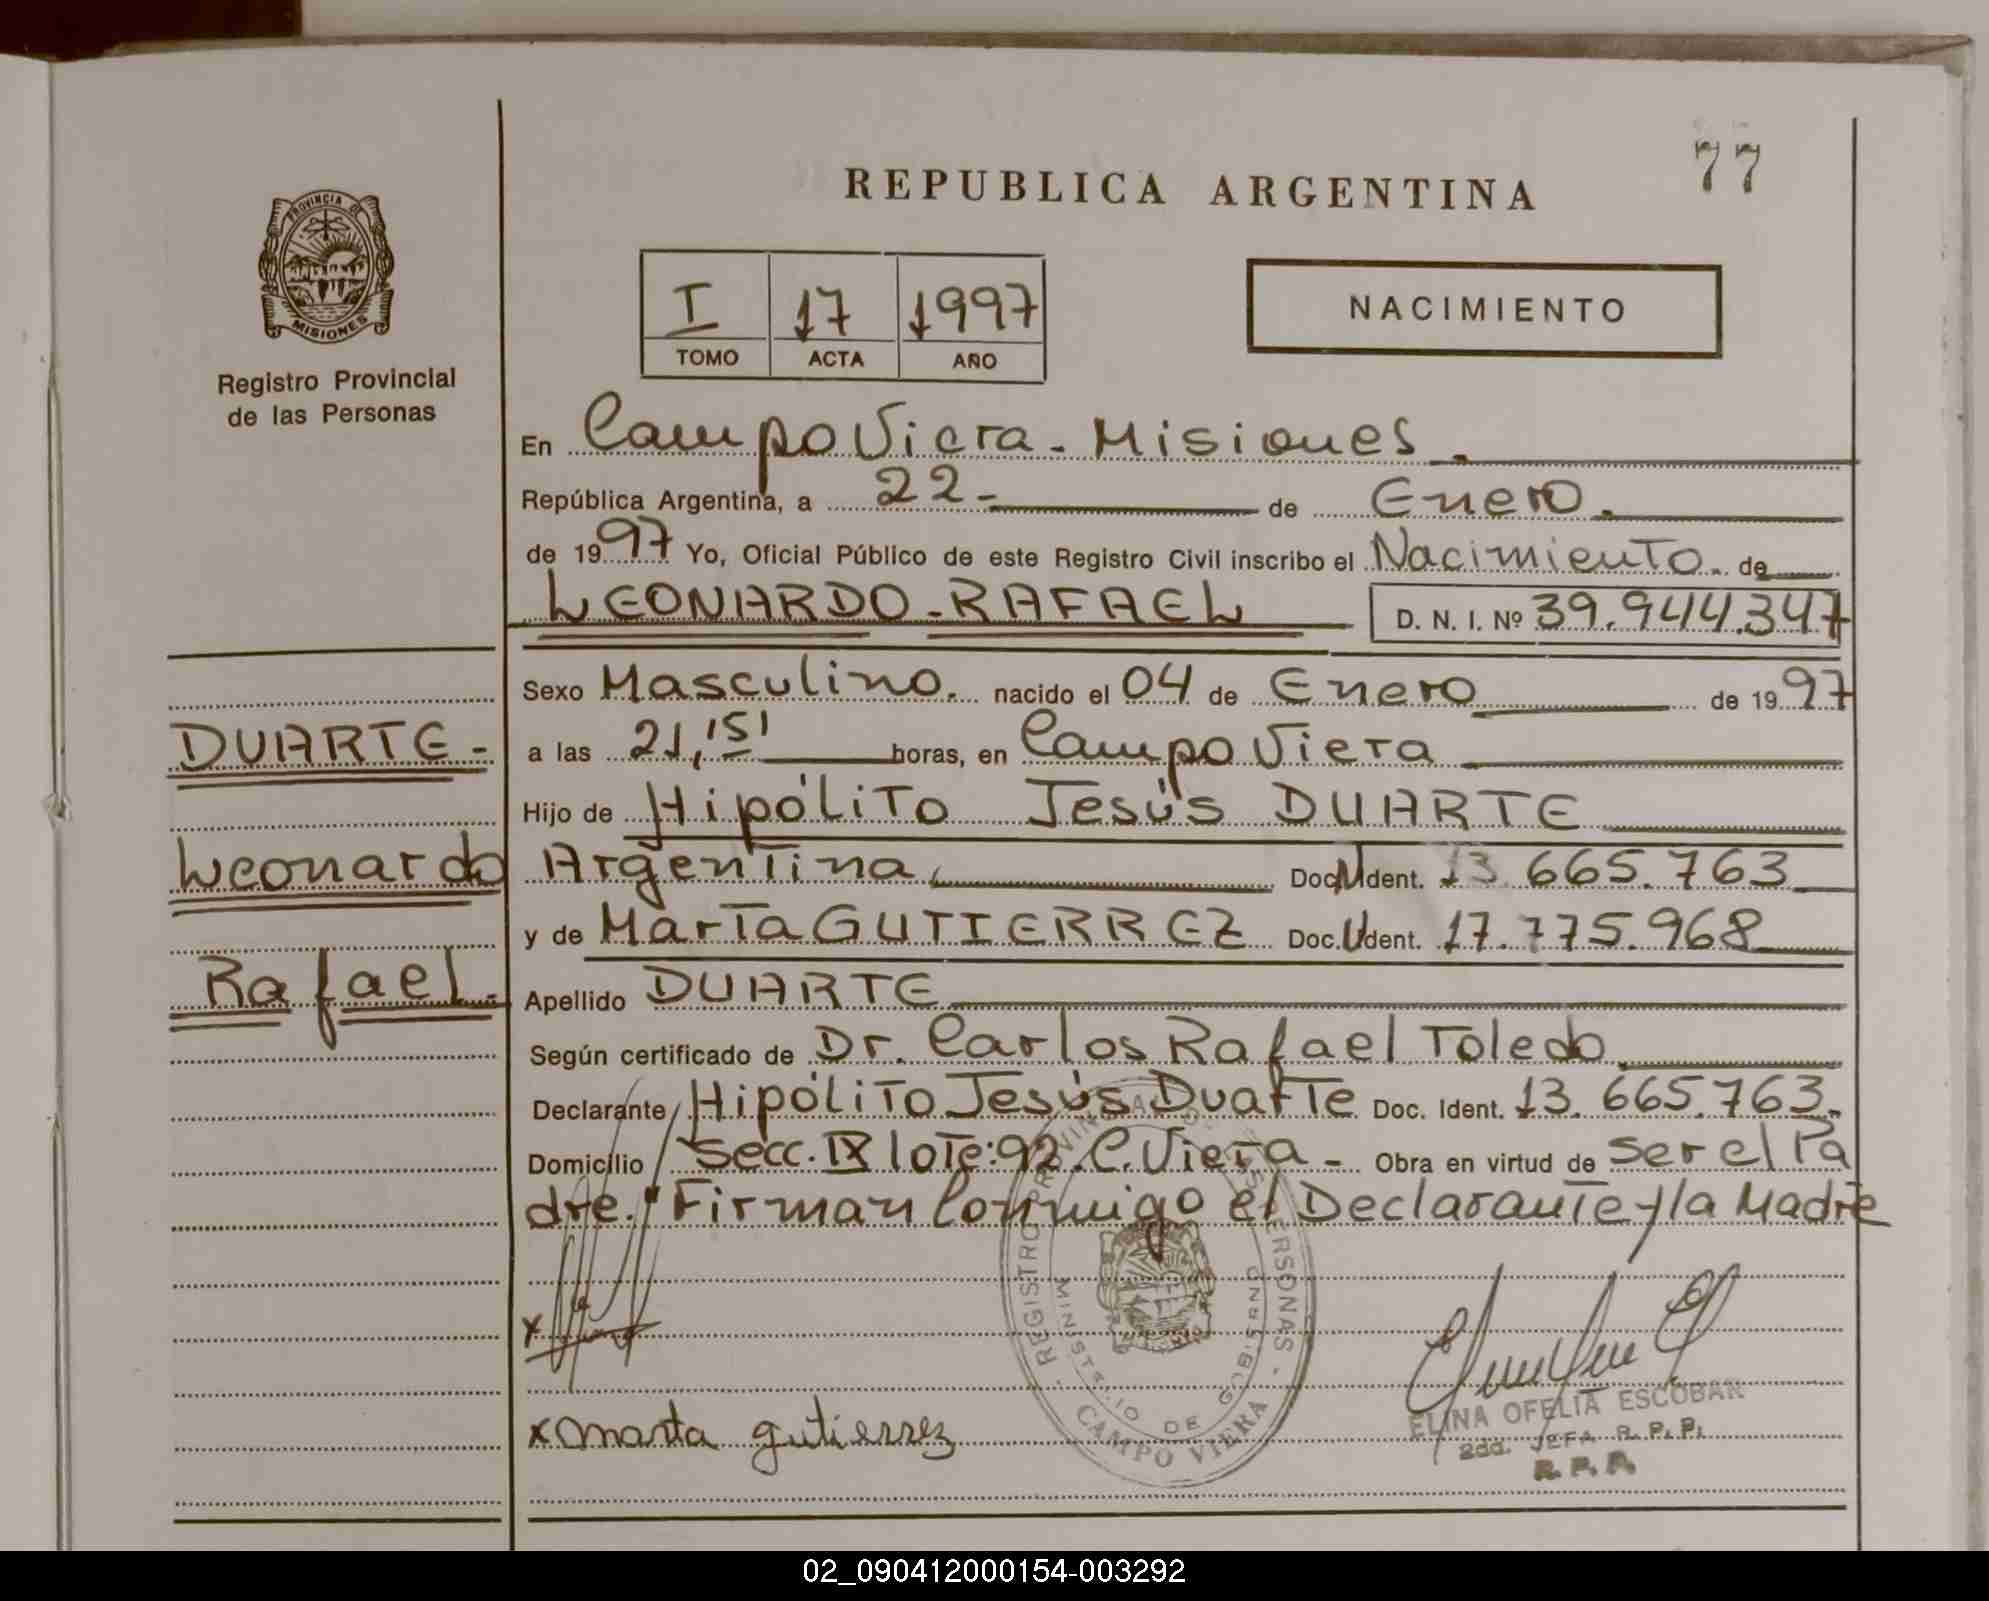 77
REPUBLICA ARGENTINA
PROVINCIA DE
MISIONES
Registro Provincial
de las Personas
I 17 1997
TOMO ACTA AÑO
NACIMIENTO
En Campo Viera - Misiones.
República Argentina, a 22- de Enero.
de 1997 Yo, Oficial Público de este Registro Civil inscribo el Nacimiento. de
LEONARDO-RAFAEL D. N. I. Nº 39.944.347
Sexo Masculino. nacido el 04 de Enero de 1997
a las 21,15' horas, en Campo Viera
Hijo de Hipólito Jesús DUARTE
Argentina, Doc. Ident. 13.665.763
y de Marta GUTIERREZ Doc. Ident. 17.775.968
Apellido DUARTE
Según certificado de Dr. Carlos Rafael Toledo
Declarante Hipólito Jesús Duarte Doc. Ident. 13.665.763.
Domicilio Secc. IX lote: 92. C. Viera - Obra en virtud de ser el Pa
dre. "Firman Conmigo el Declarante y la Madre
DUARTE-
Leonardo
Rafael-
x
x marta gutierrez
REGISTRO PROVINCIAL DE LAS PERSONAS
MINISTERIO DE GOBIERNO
CAMPO VIERA
ELINA OFELIA ESCOBAR
2da. JEFA R. P. P.
R. P. P.
02_090412000154-003292